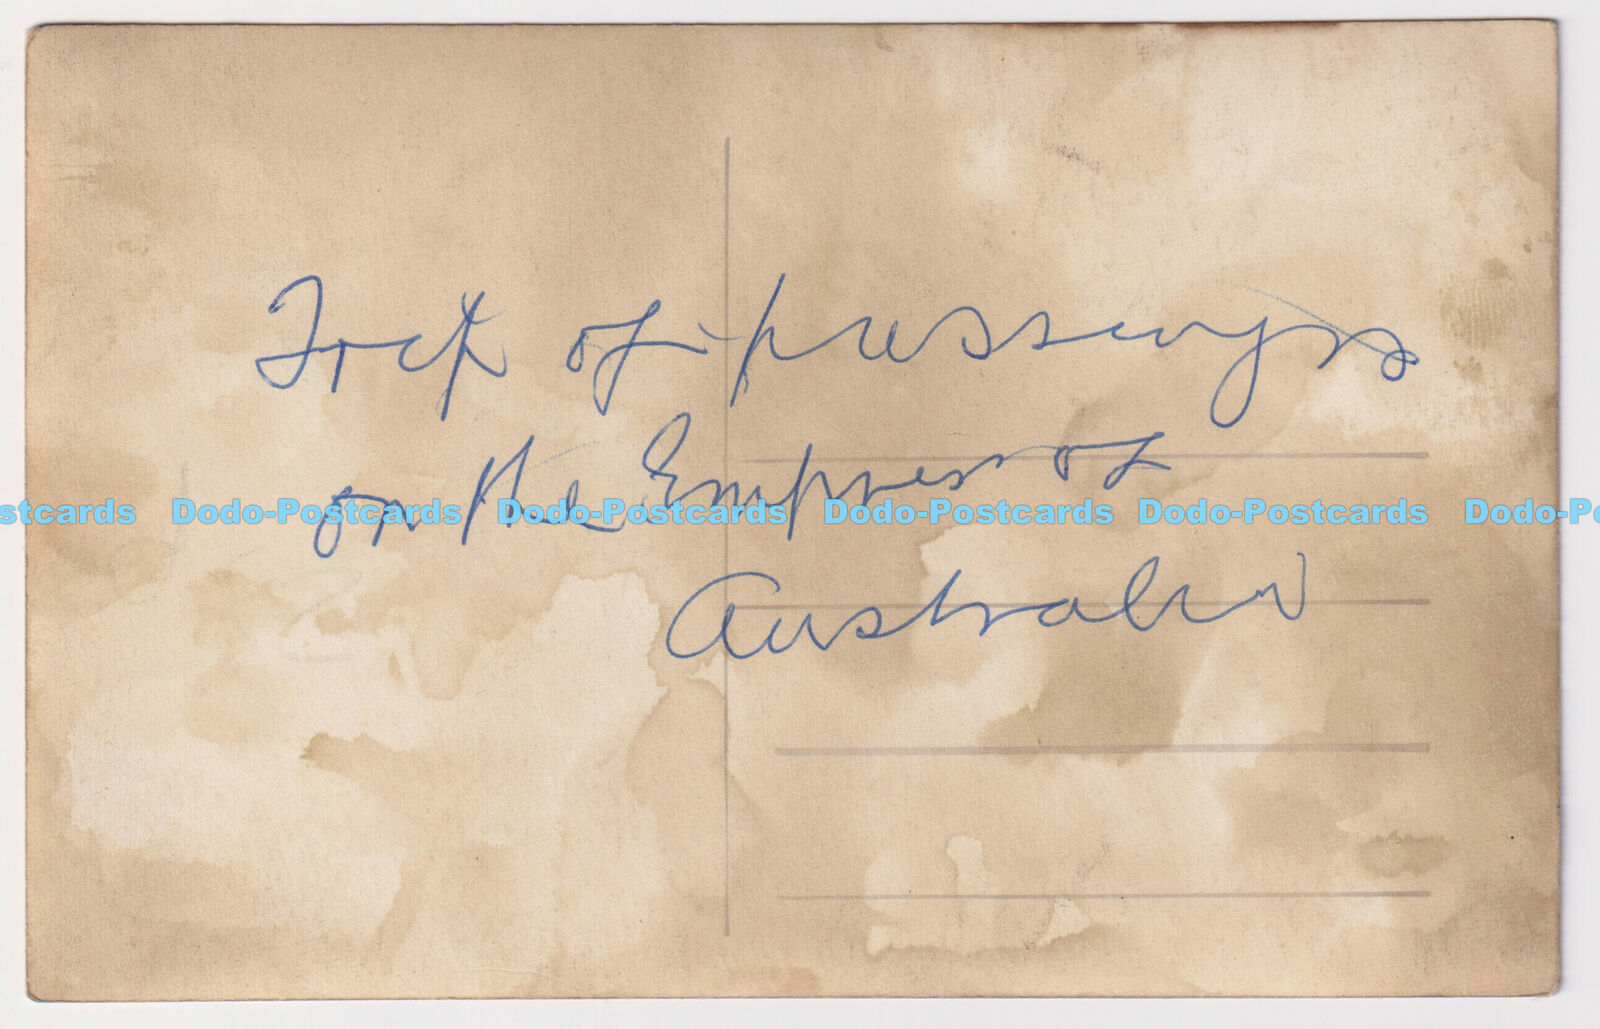 of passengers
on the Empress of
stcards Dodo-Postcards Dodo-Postcards Dodo-Postcards Dodo-Postcards Dodo-Po
Australia